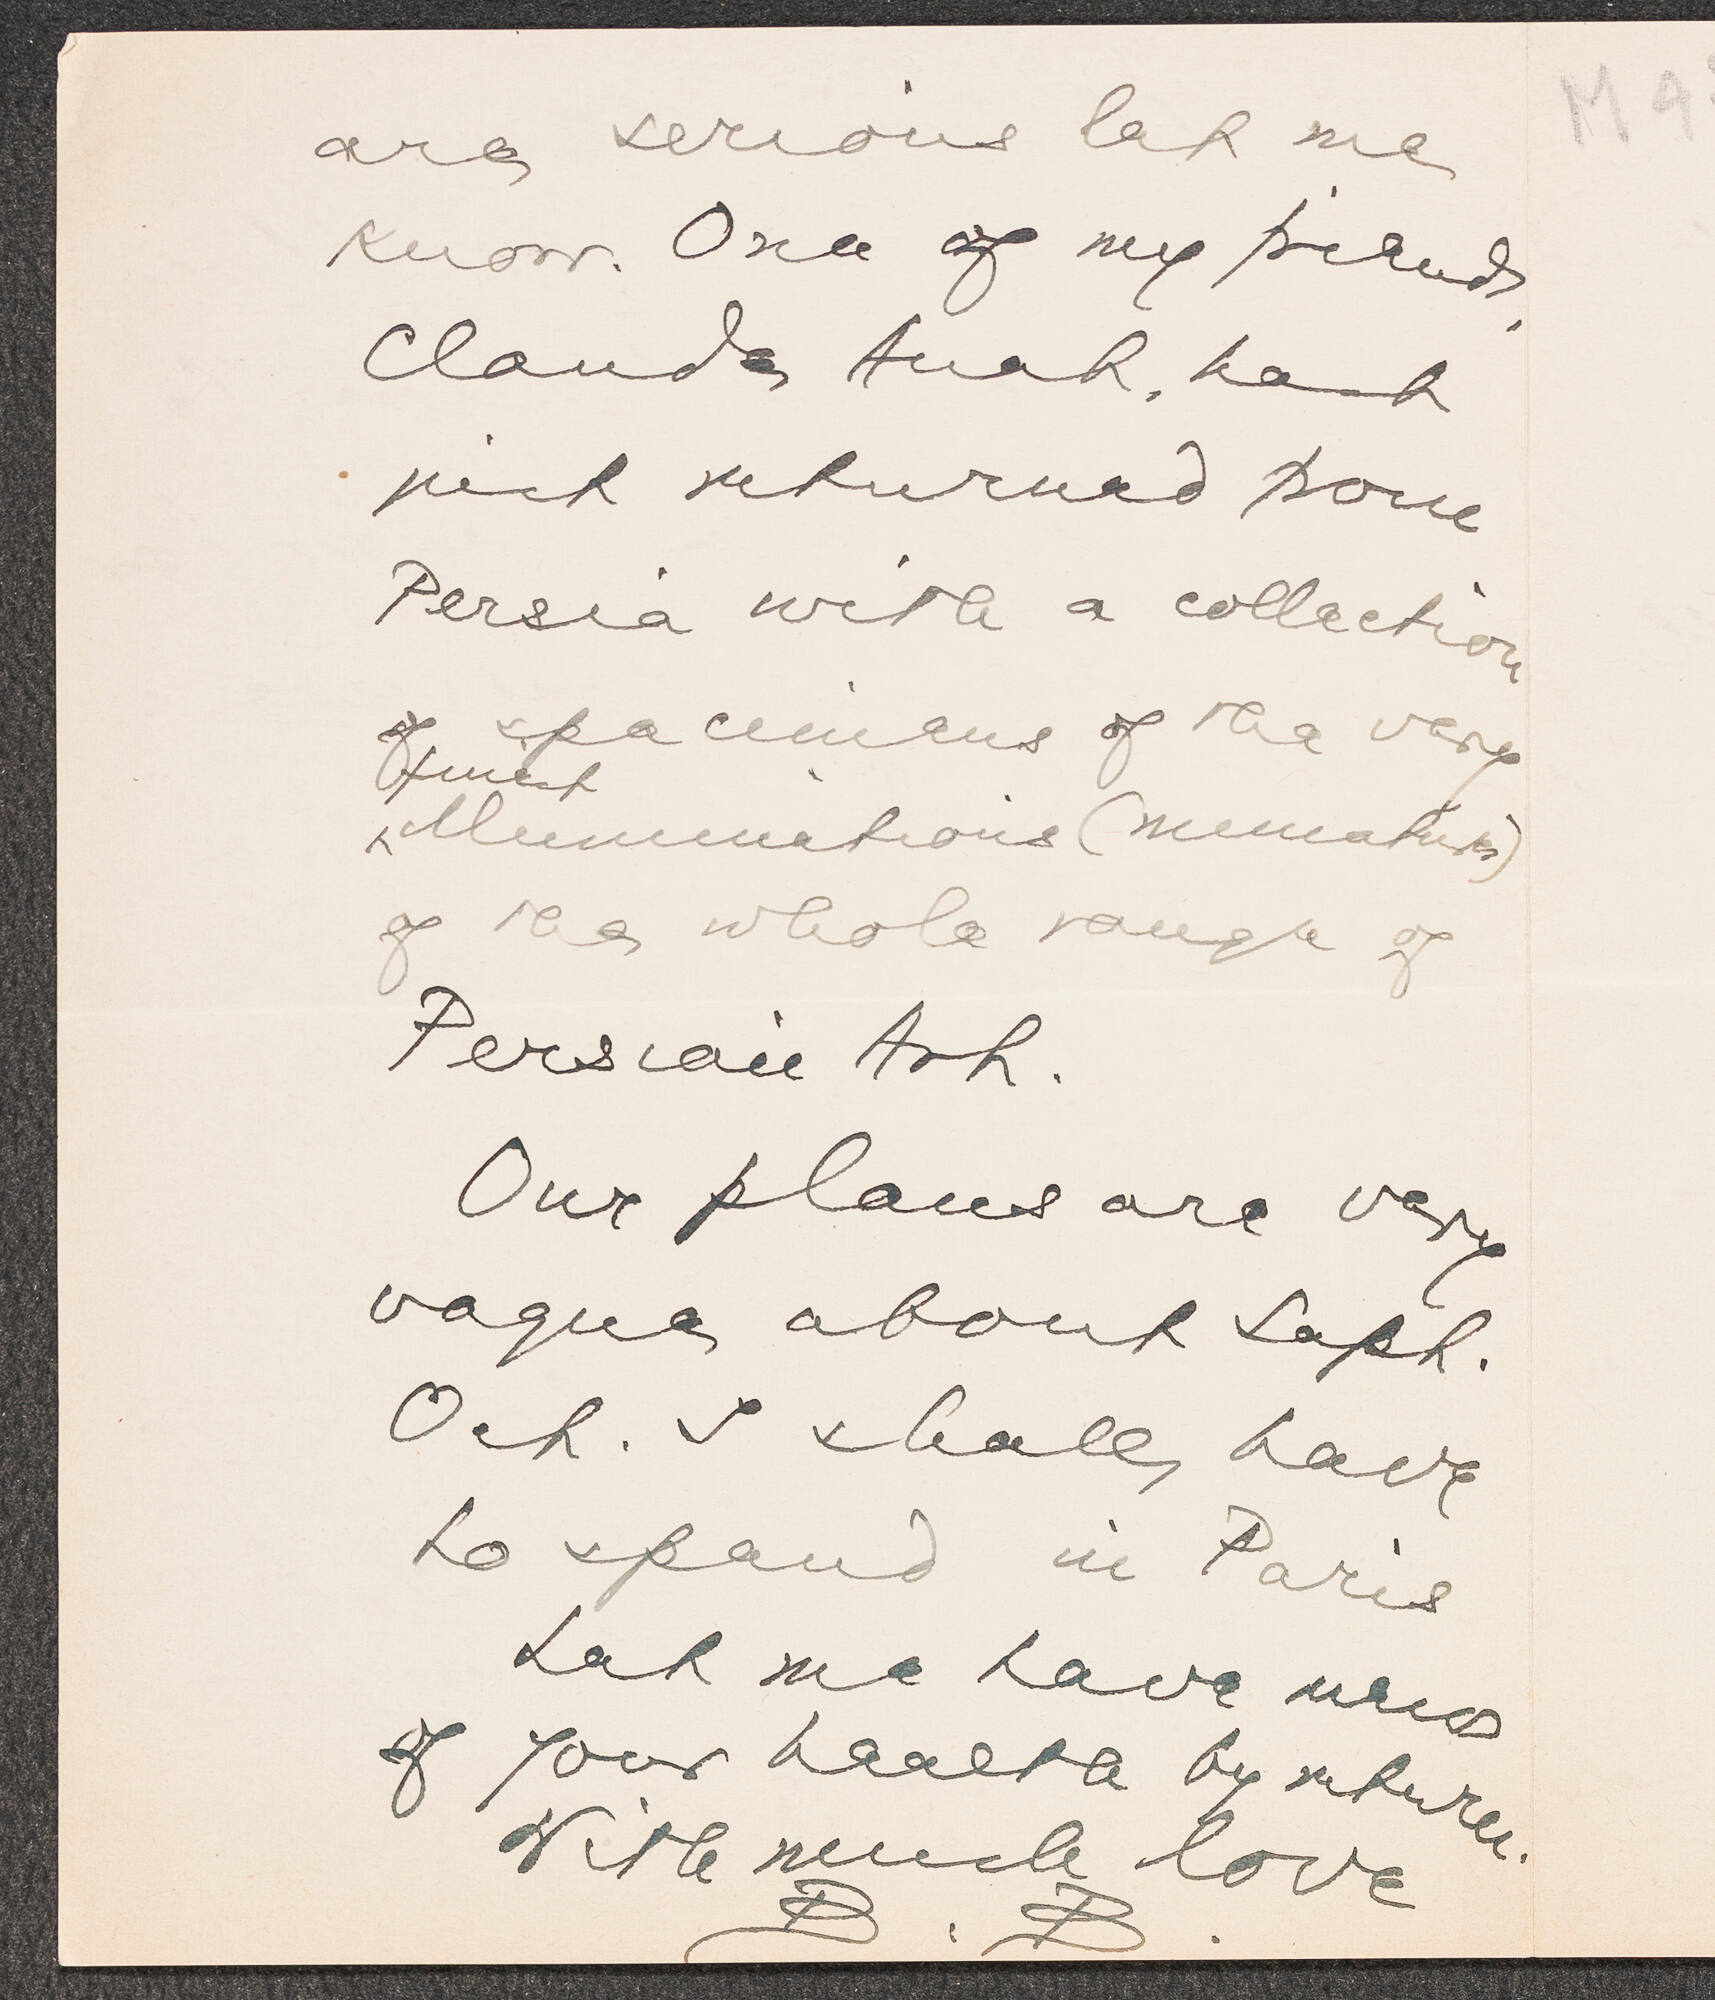 M 9
are serious let me
know. One of my friends,
Claude Anet, has
just returned from
Persia with a collection
of specimens of the very
finest
illuminations (miniatures)
of the whole range of
Persian Art.
Our plans are very
vague about Sept.
Oct. I shall have
to spend in Paris
Let me have news
of your health by return.
With much love
B. B.